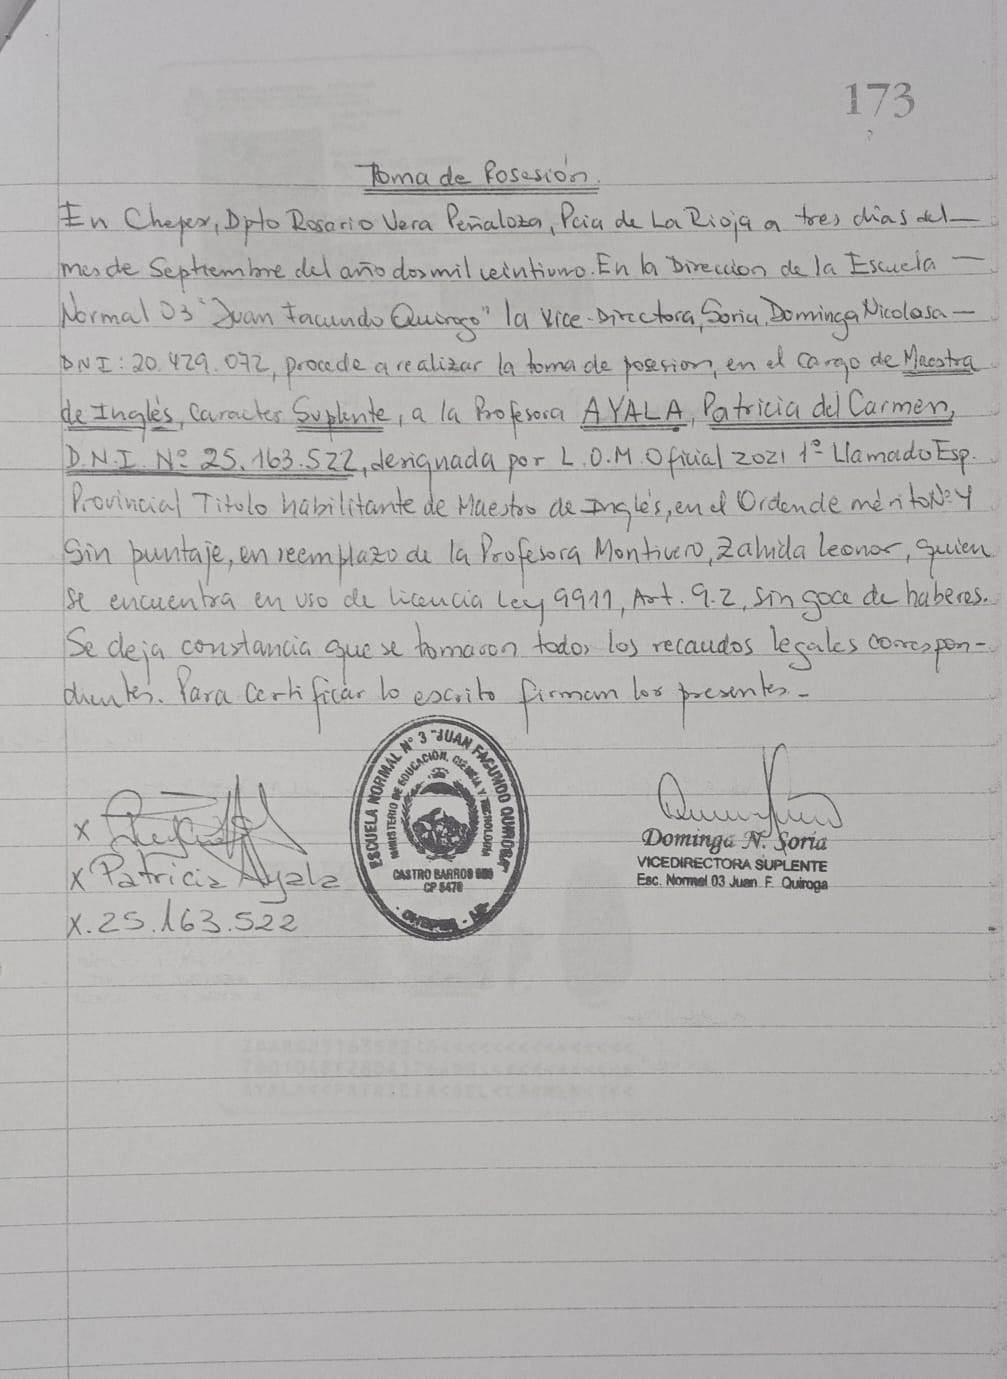 173
Toma de Posesión.
En Chepes, Dpto Rosario Vera Peñaloza, Pcia de La Rioja a tres días del
mes de Septiembre del año dos mil veintiuno. En la Direccion de la Escuela
Normal 03 "Juan Facundo Quiroga" la Vice-Directora, Soria, Dominga Nicolasa
DNI: 20.429.072, procede a realizar la toma de posesion, en el cargo de Maestra
de Inglés, Caracter Suplente, a la Profesora AYALA, Patricia del Carmen,
D.N.I Nº 25.163.522, designada por L.O.M. Oficial 2021 1º Llamado Esp.
Provincial Titulo habilitante de Maestro de Inglés, en el Orden de mérito Nº 4
Sin puntaje, en reemplazo de la Profesora Montivero, Zahida Leonor, quien
se encuentra en uso de licencia Ley 9911, Art. 9.2, sin goce de haberes.
Se deja constancia que se tomaron todos los recaudos legales correspon-
dientes. Para certificar lo escrito firman los presentes-
ESCUELA NORMAL N° 3 "JUAN FACUNDO QUIROGA"
MINISTERIO DE EDUCACIÓN, CIENCIA Y TECNOLOGIA
CASTRO BARROS
CP 5470
x
x Patricia Ayala
x. 25.163.522
Dominga N. Soria
VICEDIRECTORA SUPLENTE
Esc. Normal 03 Juan F. Quiroga